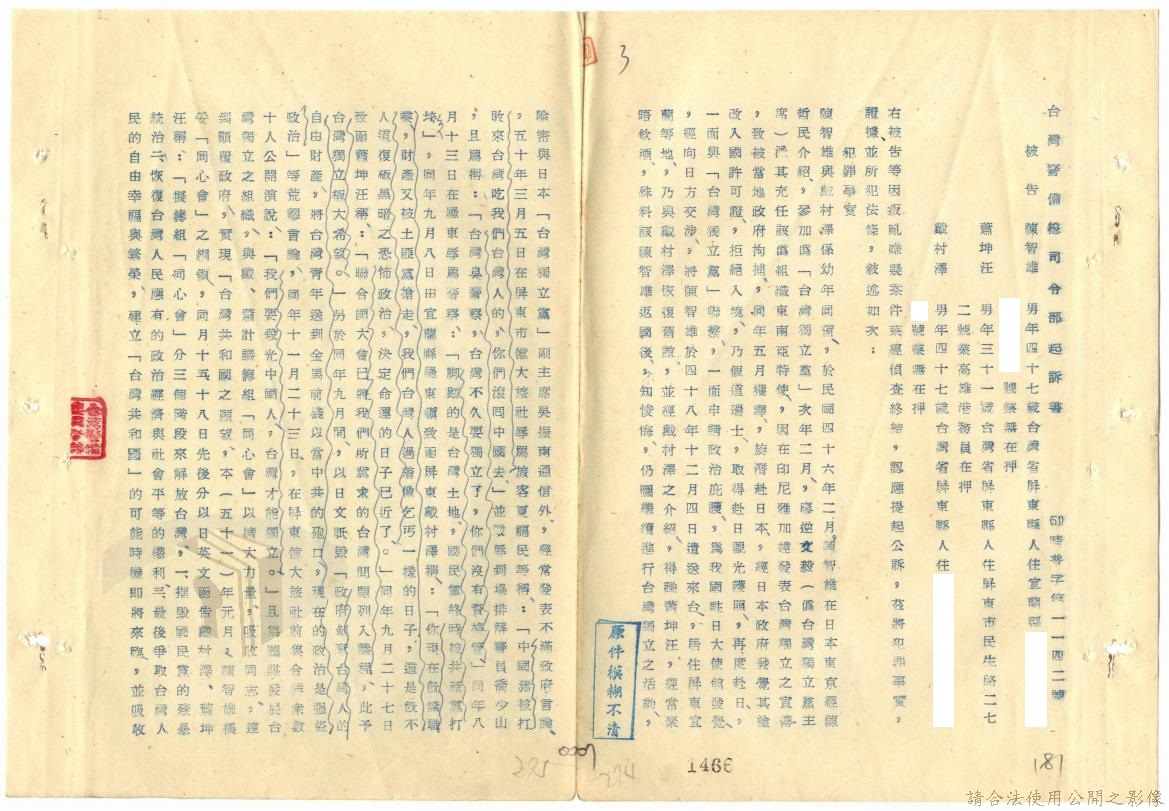 3
台灣警備總司令部起訴書
51警普字第一一四二號
被告 陳智雄 男年四十七歲台灣省屏東縣人住宜蘭縣
號業無在押
蕭坤旺 男年三十一歲台灣省屏東縣人住屏東市民生路二七
二號業高雄港務員在押
戴村澤 男年四十七歲台灣省屏東縣人住
號業無在押
右被告等因叛亂嫌疑案件業經偵查終結,認應提起公訴,茲將犯罪事實,
證據並所犯法條,敘述如次:
犯罪事實
陳智雄與戴村澤係幼年同窗,於民國四十六年二月,陳智雄在日本東京經陳
哲民介紹,參加偽「台灣獨立黨」次年二月,廖逆文毅(偽台灣獨立黨主
席)派其充任該偽組織東南亞特使,因在印尼雅加達發表台灣獨立之宣傳
,致被當地政府拘捕,同年五月獲釋,旋潛赴日本,經日本政府發覺其塗
改入國許可證,拒絕入境,乃假道瑞士,取得赴日觀光護照,再度赴日,
一面與「台灣獨立黨」聯繫,一面申請政治庇護,為我國駐日大使館發覺
,經向日方交涉,將陳智雄於四十八年十二月四日遣送來台,居住屏東宜
蘭等地,乃與戴村澤恢復舊誼,並經戴村澤之介紹,得識蕭坤旺,經常聚
晤飲酒,殊料該陳智雄返國後,不知悛悔,仍圖繼續進行台灣獨立之活動,
除密與日本「台灣獨立黨」副主席吳振南通信外,經常發表不滿政府言論
,五十年三月五日在屏東市億大旅社辱罵旅客夏福民等稱:「中國豬被打
敗來台灣吃我們台灣人的,你們滾回中國去,」並毀辱到場排解警員喬少山
,且罵稱:「台灣臭警察,台灣不久要獨立了,你們沒有資格管」同年八
月十三日在羅東辱罵警察:「腳踏的是台灣土地,國民黨終將被共匪黨打
垮」,同年九月八日由宜蘭縣羅東鎮致函屏東戴村澤稱:「你現在既無職
業,財產又被土匪黨搶走,我們台灣人過着像乞丐一樣的日子,這是毀不
人道復極黑暗之恐怖政治,決定命運的日子已近了。」同年九月二十七日
致函蕭坤旺稱:「聯合國大會已將我們所冀求的台灣問題列入議程,此予
台灣獨立極大希望。」另於同年九月間,以日文詆毀「政府剝奪台灣人的
自由財產,將台灣青年送到金馬前線以當中共的砲口,現在的政治是強盜
政治」等荒謬言論,同年十一月二十三日,在屏東億大旅社前集合群眾數
十人公開演說:「我們要殺光中國人,台灣才能獨立。」且為圖謀發展台
灣獨立之組織,與戴、蕭計議籌組「同心會」以擴大力量,吸收同志,達
到顛覆政府,實現「台灣共和國之願望,本(五十一)年元月,陳智雄擬
妥「同心會」之綱領,同月十五、十八日先後分以日英文函告戴村澤、蕭坤
旺稱:「擬籌組「同心會」分三個階段來解放台灣,一、摧毀國民黨的殘暴
統治二、恢復台灣人民應有的政治經濟與社會平等的權利三、最後爭取台灣人
民的自由幸福與繁榮,建立「台灣共和國」的可能時機即將來臨,並吸收
原件模糊不清
1466
181
274
275
請合法使用公開之影像